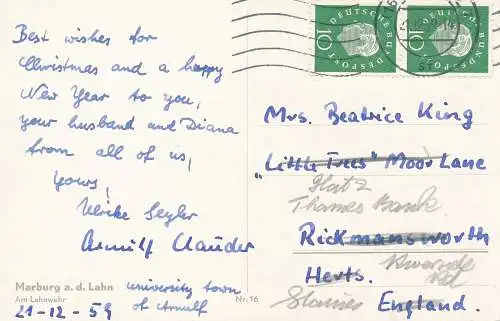 Best wishes for
Christmas and a happy
New Year to you,
your husband and Diana
from all of us,
Yours,
Ulrike Segler
Arnulf Clauder
Marburg a. d. Lahn
Am Lahnwehr
university town
of Arnulf
21-12-59
Nr. 16
DEUTSCHE BUNDESPOST
10
DEUTSCHE BUNDESPOST
10
Mrs. Beatrice King
"Little Trees" Moor Lane
Flat 2
Thames Bank
Rickmansworth
Riverside
Rd
Herts.
Staines
England.